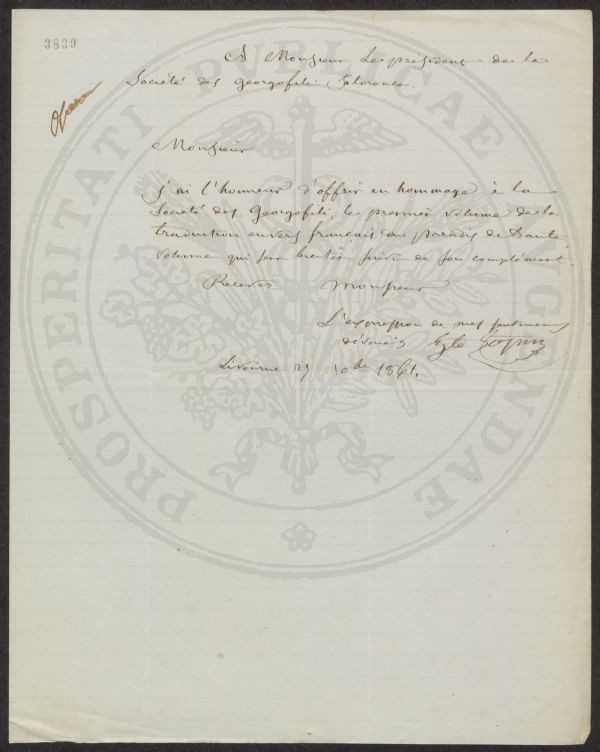 3839
A Monsieur Le président de la
Société des georgofili Florence.
Monsieur
j'ai l'honneur d'offrir en hommage à la
Société des Georgofili, le premier volume de la
traduction en vers français du paradis de Dante,
volume qui sera bientôt suivi de son complément.
Recevez Monsieur
L'expression de mes sentimens
dévoués
Livourne 29 10bre 1861.
PROSPERITATI PUBLICAE AUGENDAE